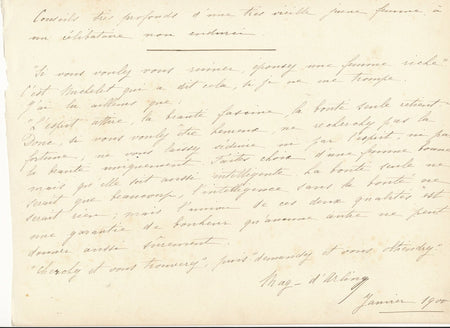 Conseils très profonds d'une très vieille jeune femme à
un célibataire non endurci.
"Si vous voulez vous ruiner, épousez une femme riche"
C'est Michelet qui a dit cela, si je ne me trompe.
J'ai lu ailleurs que:
"L'esprit attire, la beauté fascine, la bonté seule retient"
Donc, si vous voulez être heureux, ne recherchez pas la
fortune, ne vous laissez séduire ni par l'esprit, ni par
la beauté uniquement. Faites choix d'une femme bonne
mais qu'elle soit aussi intelligente. La bonté seule ne
serait que beaucoup, l'intelligence sans la bonté ne
serait rien; mais l'union de ces deux qualités est
une garantie de bonheur qu'aucune autre ne peut
donner aussi sûrement.
"Cherchez et vous trouverez", puis "demandez et vous obtiendrez"
Mag - d'Arling
Janvier 1900